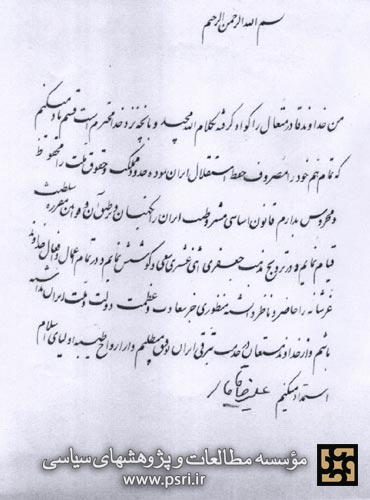 بسم الله الرحمن الرحیم
من خداوند قادر متعال را گواه گرفته بکلام الله مجید و بآنچه نزد خدا محترم است قسم یاد میکنم
که تمام هم خود را مصروف حفظ استقلال ایران نموده حدود مملکت و حقوق ملت را محفوظ
و محروس بدارم قانون اساسی مشروطیت ایران را نگهبان و بر طبق آن و قوانین مقرره سلطنت
قیام نمایم و در ترویج مذهب جعفری اثنی عشری سعی و کوشش نمایم و در تمام اعمال و افعال خداوند
عز شانه را حاضر و ناظر دانسته منظوری جز سعادت و عظمت دولت و ملت ایران نداشته
باشم و از خداوند مستعان در خدمت بترقی ایران توفیق میطلبم و از ارواح طیبه اولیای اسلام
استمداد میکنم علیرضا قاجار
مؤسسه مطالعات و پژوهشهای سیاسی
www.psri.ir